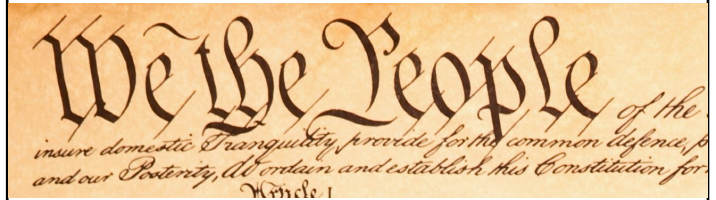 We the People of the
insure domestic Tranquility, provide for the common defence, p
and our Posterity, do ordain and establish this Constitution for
Article I